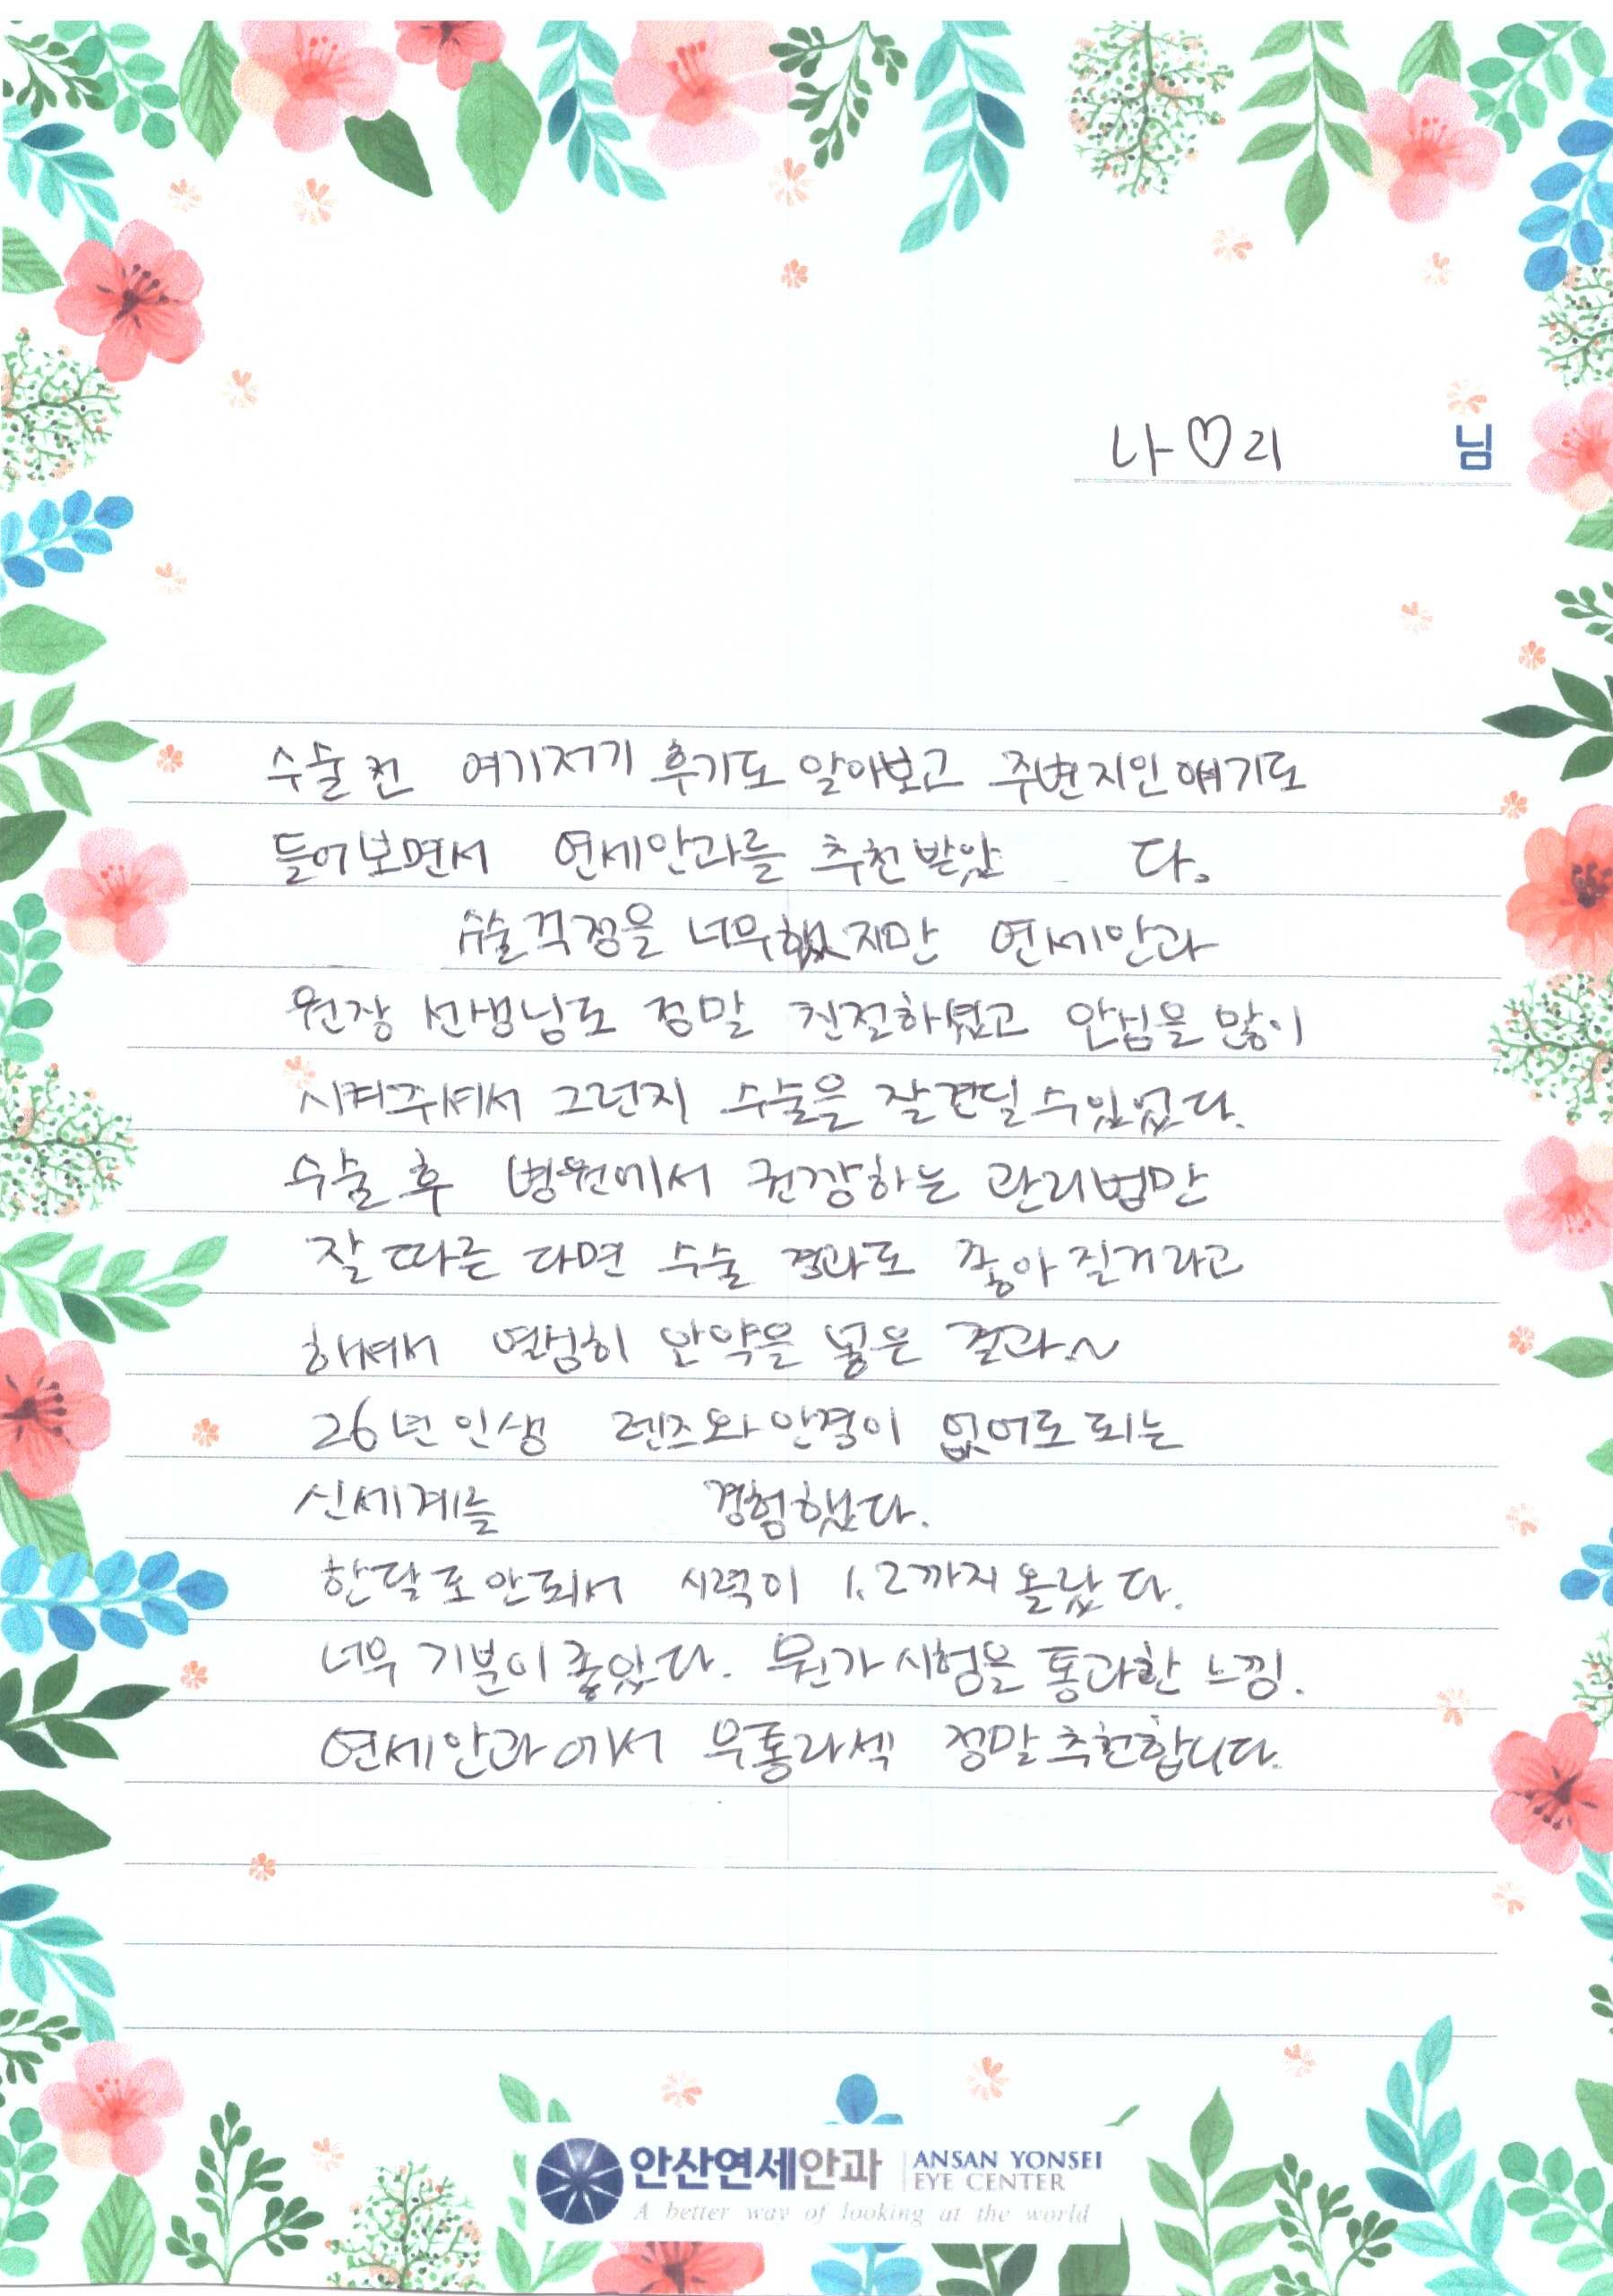 나♡리 님
수술전 여기저기 후기도 알아보고 주변지인 얘기도
들어보면서 연세안과를 추천받았 다.
수술걱정을 너무했지만 연세안과
원장 선생님도 정말 친절하셨고 안심을 많이
시켜주셔서 그런지 수술을 잘견딜수있었다.
수술후 병원에서 권장하는 관리법만
잘 따른 다면 수술 결과도 좋아질거라고
하셔서 열심히 안약을 넣은 결과~
26년인생 렌즈와안경이 없어도되는
신세계를 경험했다.
한달도안되서 시력이 1.2까지올랐다.
너무 기분이좋았다. 뭔가시험을 통과한 느낌.
연세안과에서 무통라섹 정말추천합니다.
안산연세안과 ANSAN YONSEI
EYE CENTER
A better way of looking at the world